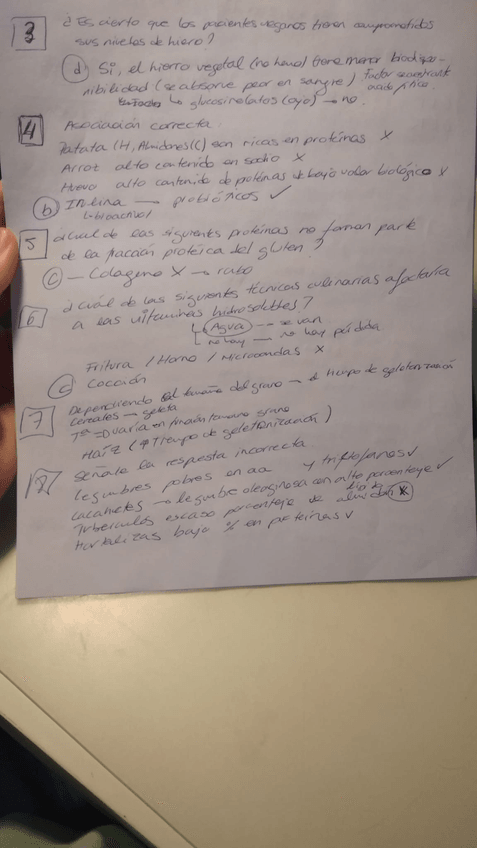 3 ¿Es cierto que los pacientes veganos tienen comprometidos
sus niveles de hierro?
d) Si, el hierro vegetal (no hemo) tiene menor biodispo-
nibilidad (se absorve peor en sangre) factor
ácido fítico
↳ glucosinolatos (ajo) → no
4 Asociación correcta
Patata (H, Almidones (C)) son ricas en proteínas X
Arroz alto contenido en sodio X
Huevo alto contenido de proteínas de bajo valor biológico X
b) Inulina → probióticos ✓
5 ¿Cuál de las siguientes proteínas no forman parte
de la fracción protéica del gluten?
c) — Colageno X →
6 ¿Cuál de las siguientes técnicas culinarias afectaría
a las vitaminas hidrosolubles?
↳ Agua -- se van
↳ no hay — no hay pérdida
Fritura / Horno / Microondas X
Cocción
7 Dependiendo del tamaño del grano → el tiempo de geletonización
Cereales — geleta
Tª = varía en función tamaño grano
Maíz (↑ Tiempo de geletonización)
Señale la respuesta incorrecta
Legumbres pobres en aa y triptófanos ✓
Cacahuetes → legumbre oleaginosa con alto porcentaje ✓
Tubérculos escaso porcentaje de almidón X
Hortalizas bajo % en proteínas ✓